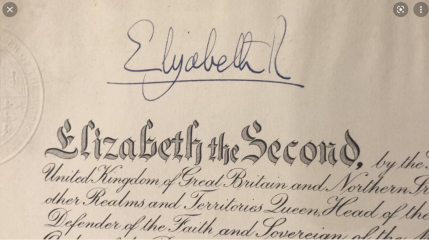 Elizabeth R
Elizabeth the Second, by the
United Kingdom of Great Britain and Northern
other Realms and Territories Queen, Head of the
Defender of the Faith, and Sovereign of the